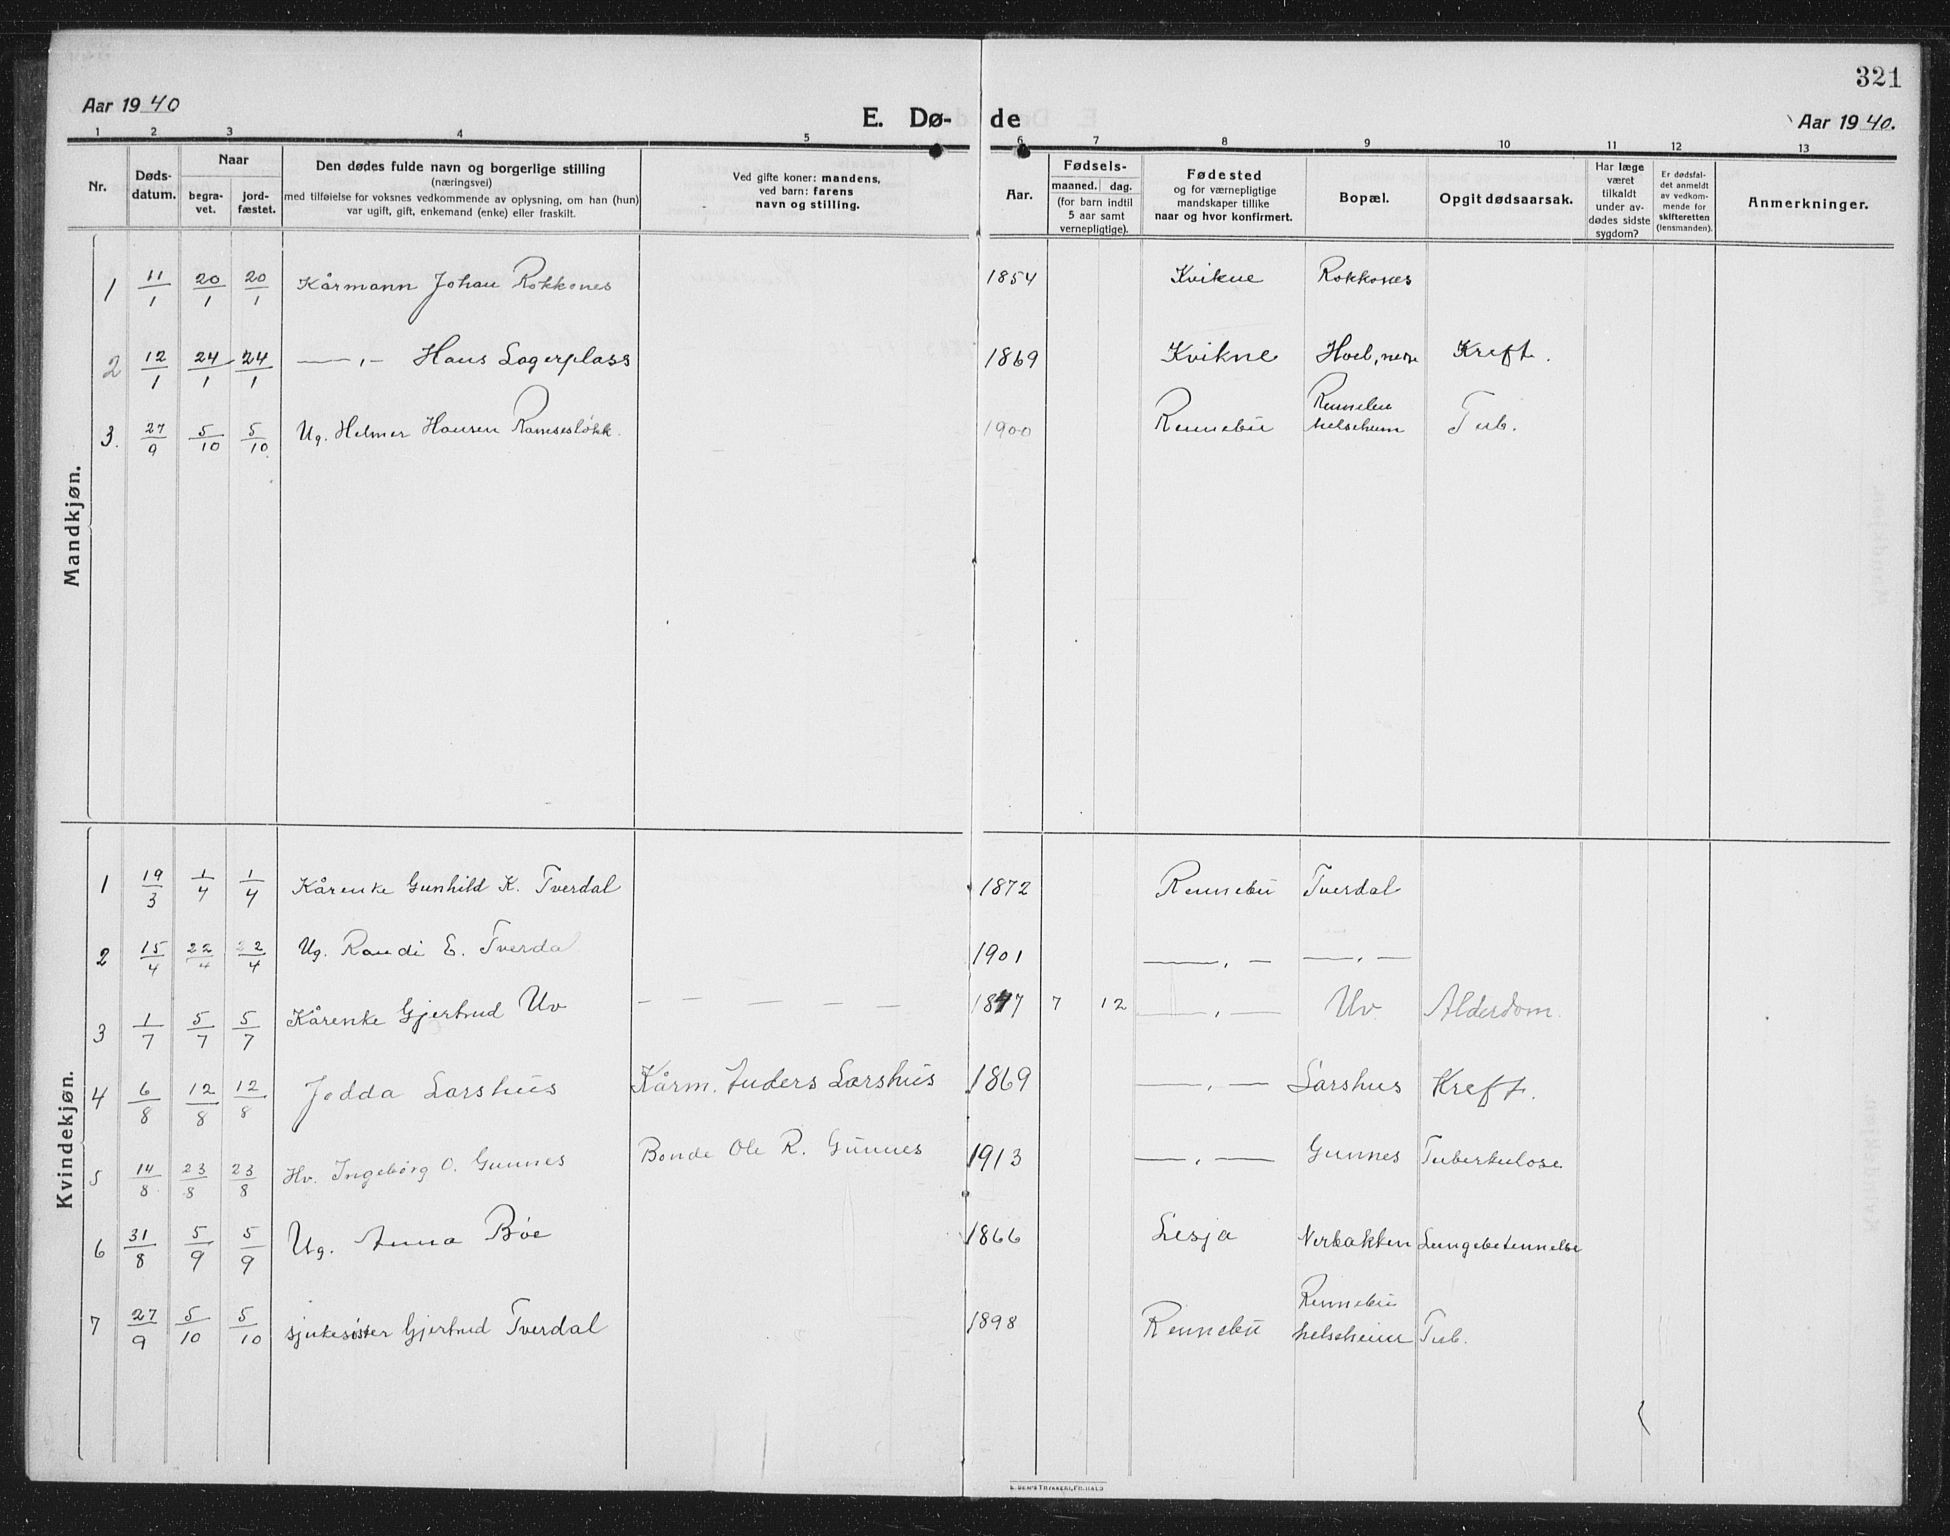 321
Aar 1940
E. Dø- de
Aar 1940.
1 2 3 4 5 6 7 8 9 10 11 12 13
Nr.
Døds-
datum.
Naar
begra-
vet.
jord-
fæstet.
Den dødes fulde navn og borgerlige stilling
(næringsvei)
med tilføielse for voksnes vedkommende av oplysning, om han (hun)
var ugift, gift, enkemand (enke) eller fraskilt.
Ved gifte koner: mandens,
ved barn: farens
navn og stilling.
Aar.
Fødsels-
maaned. dag.
(for barn indtil
5 aar samt
vernepligtige).
Fødested
og for værnepligtige
mandskaper tillike
naar og hvor konfirmert.
Bopæl.
Opgit dødsaarsak.
Har læge
været
tilkaldt
under av-
dødes sidste
sygdom?
Er dødsfal-
det anmeldt
av vedkom-
mende for
skifteretten
(lensmanden).
Anmerkninger.
Mandkjøn.
1 11/1 20/1 20/1 Kårmann Johan Rokkones 1854 Kvikne Rokkones
2 12/1 24/1 24/1 —,,— Hans Lagerplass 1869 Kvikne Hoel, nere Kreft.
3. 27/9 5/10 5/10 Ug. Helmer Hansen Ramsesløkk. 1900 Rennebu Rennebu helseheim Tub.
Kvindekjøn.
1 19/3 1/4 1/4 Kårenke Gunhild K. Tverdal 1872 Rennebu Tverdal
2 15/4 22/4 22/4 Ug. Randi E. Tverdal 1901 —,,— —,,—
3 1/7 5/7 5/7 Kårenke Gjertrud Uv — — — — — 1847 7 12 —,,— Uv Alderdom.
4 6/8 12/8 12/8 Jodda Larshus Kårm. Anders Larshus 1869 —,,— Larshus Kreft.
5 14/8 23/8 23/8 Hv. Ingebørg O. Gunnes Bonde Ole R. Gunnes 1913 —,,— Gunnes Tuberkulose
6 31/8 5/9 5/9 Ug. Anna Bøe 1866 Lesja Nerbakken Lungebetennelse
7 27/9 5/10 5/10 sjukesøster Gjertrud Tverdal 1898 Rennebu Rennebu helseheim Tub.